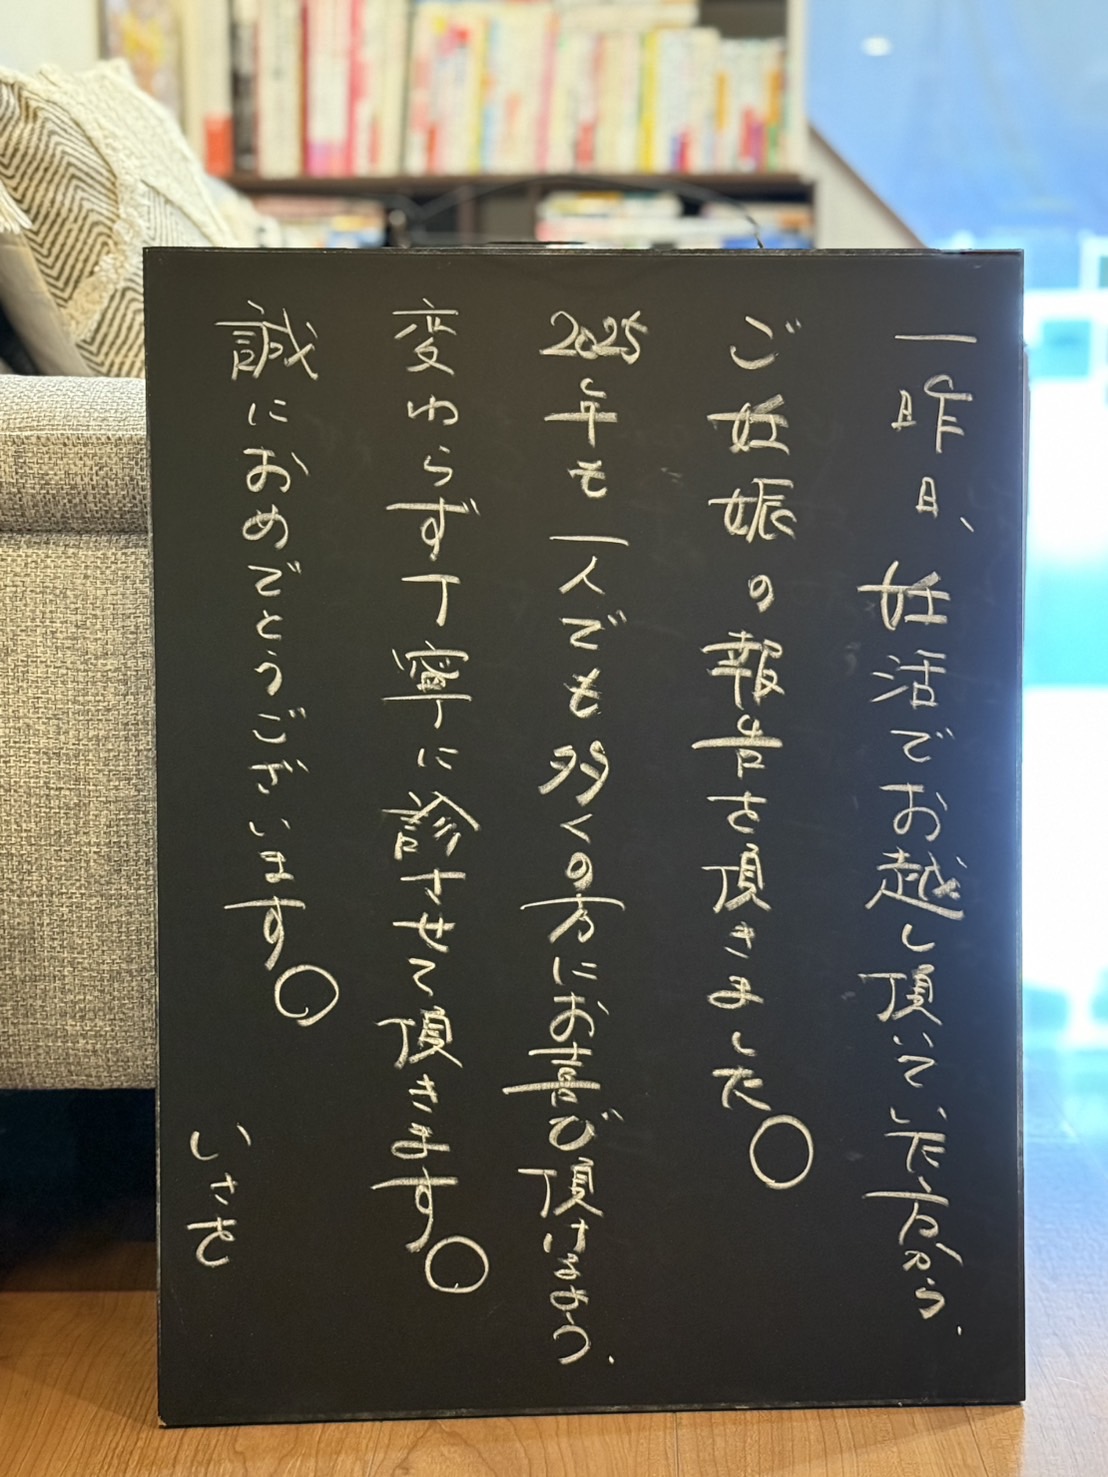 一昨日、妊活でお越し頂いていた方から、
ご妊娠の報告を頂きました。
2025年も一人でも多くの方にお喜び頂けるよう、
変わらず丁寧に診させて頂きます。
誠におめでとうございます。
いさを